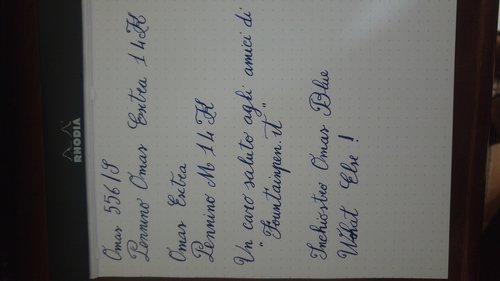 RHODIA
Omas 556/S
Pennino Omas Extra 14K
Omas Extra
Pennino M 14K
Un caro saluto agli amici di
"Fountainpen.it"
Inchiostro Omas Blue
What Else!